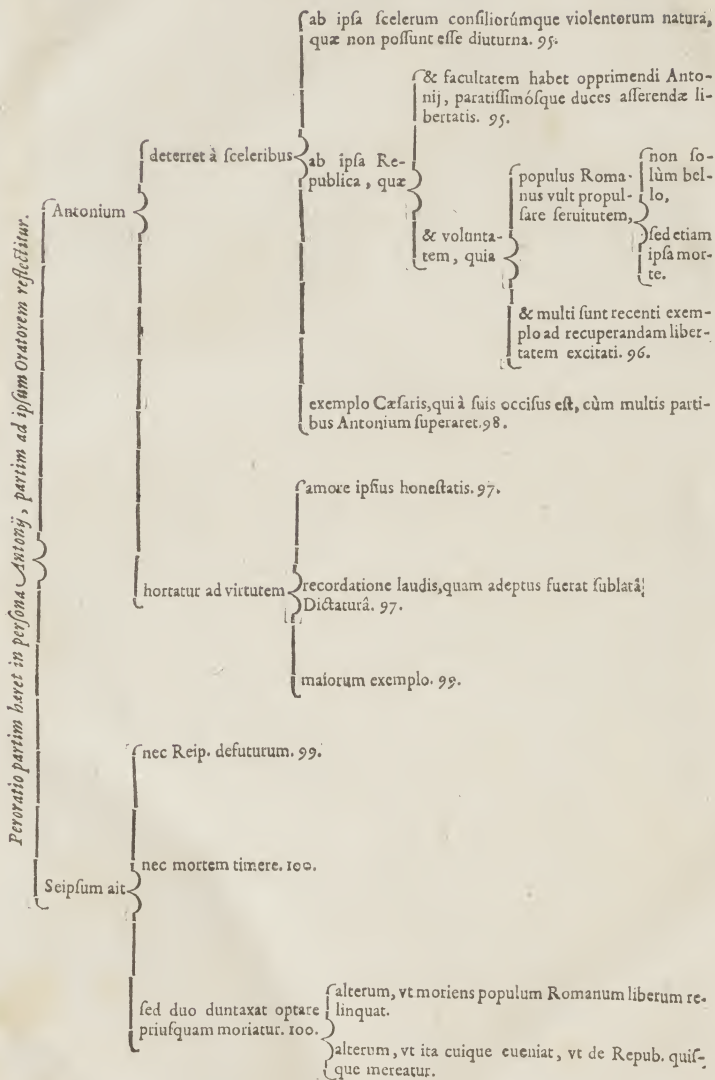 Peroratio partim hæret in persona Antonij, partim ad ipsum Oratorem reflectitur.
Antonium
deterret à ſceleribus
ab ipſa ſcelerum conſiliorúmque violentorum natura,
quæ non poſſunt eſſe diuturna. 95.
ab ipſa Re-
publica, quæ
& facultatem habet opprimendi Anto-
nij, paratiſſimóſque duces aſſerendæ li-
bertatis. 95.
& volunta-
tem, quia
populus Roma-
nus vult propul-
ſare ſeruitutem,
non ſo-
lùm bel-
lo,
ſed etiam
ipſa mor-
te.
& multi ſunt recenti exem-
plo ad recuperandam liber-
tatem excitati. 96.
exemplo Cæſaris, qui à ſuis occiſus eſt, cùm multis parti-
bus Antonium ſuperaret. 98.
hortatur ad virtutem
amore ipſius honeſtatis. 97.
recordatione laudis, quam adeptus fuerat ſublatâ
Dictaturâ. 97.
maiorum exemplo. 99.
Seipſum ait
nec Reip. defuturum. 99.
nec mortem timere. 100.
ſed duo duntaxat optare
priuſquam moriatur. 100.
alterum, vt moriens populum Romanum liberum re-
linquat.
alterum, vt ita cuique eueniat, vt de Repub. quiſ-
que mereatur.